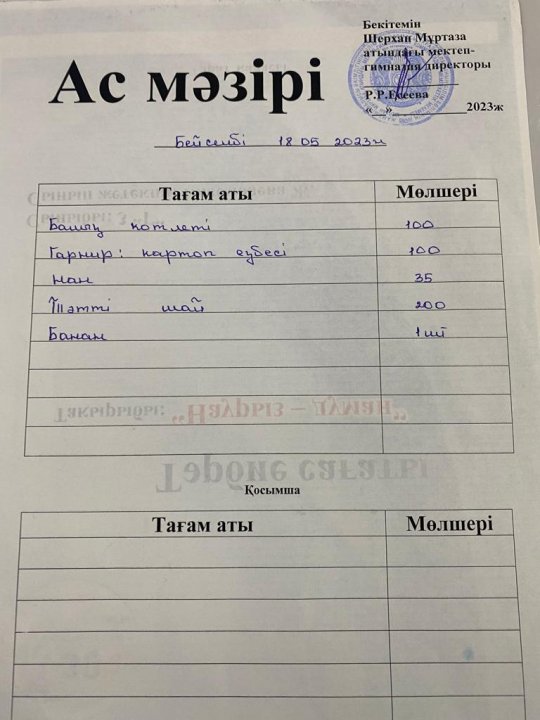 Бекітемін
Шерхан Мұртаза
атындағы мектеп-
гимназия директоры
Р.Р.Есеева
«__»__________2023ж
Ас мәзірі
Бейсенбі 18 05 2023ж
Тағам аты Мөлшері
Балық котлеті 100
Гарнир: картоп езбесі 100
Нан 35
Тәтті шай 200
Банан 1 шт
Тақырыбы: "Наурыз – думан"
Тәрбие сағаты
Қосымша
Тағам аты Мөлшері